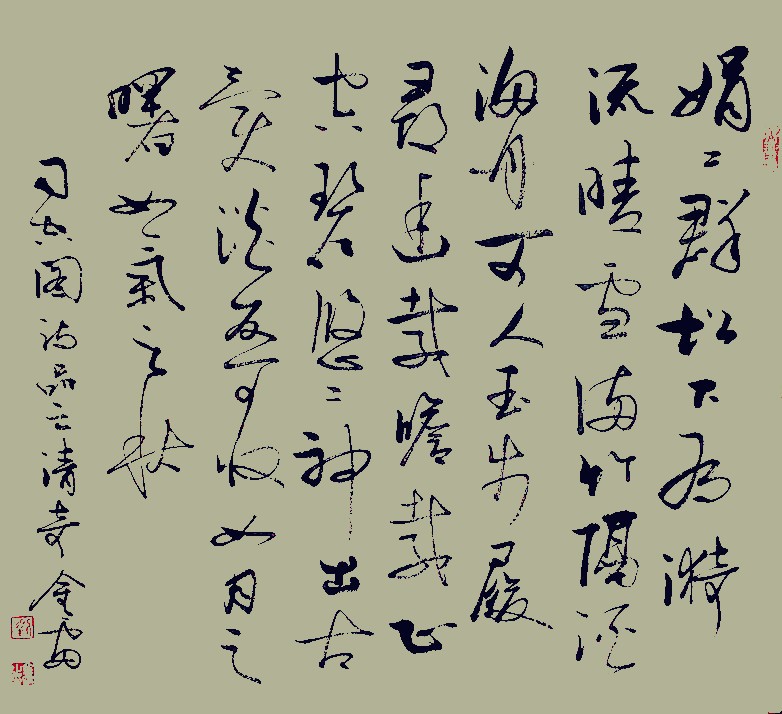 娟〻群松下有漪
流晴雪满竹隔溪
渔舟可人玉步屧
尋幽載瞻載止
空碧悠〻神出古
異淡不可收如月之
曙如氣之秋
司空图诗品之清奇